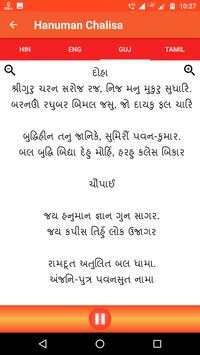 10:27
Hanuman Chalisa
HIN ENG GUJ TAMIL
દોહા
શ્રીગુરુ ચરન સરોજ રજ, નિજ મનુ મુકુરુ સુધારિ.
બરનઊઁ રઘુબર બિમલ જસુ, જો દાયકુ ફલ ચારિ
બુદ્ધિહીન તનુ જાનિકે, સુમિરૌં પવન-કુમાર.
બલ બુદ્ધિ બિદ્યા દેહુ મોહિં, હરહુ કલેસ બિકાર
ચૌપાઈ
જય હનુમાન જ્ઞાન ગુન સાગર.
જય કપીસ તિહુઁ લોક ઉજાગર
રામદૂત અતુલિત બલ ધામા.
અંજનિ-પુત્ર પવનસુત નામા